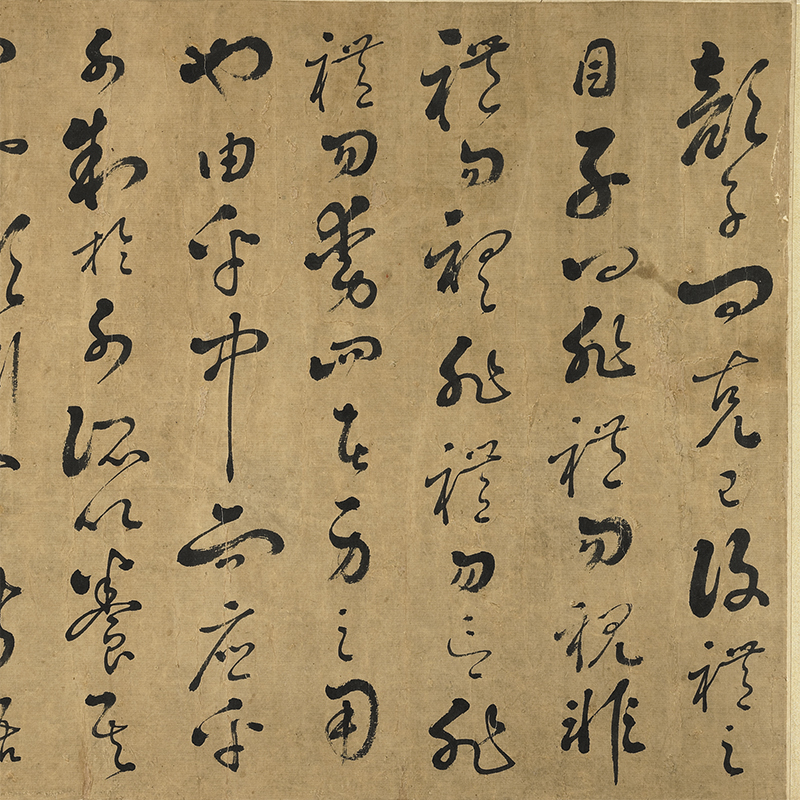 顏子問克己復禮之
目子曰非禮勿視非
禮勿聽非禮勿言非
禮勿動四者身之用
也由乎中而應乎
外制於外所以養其